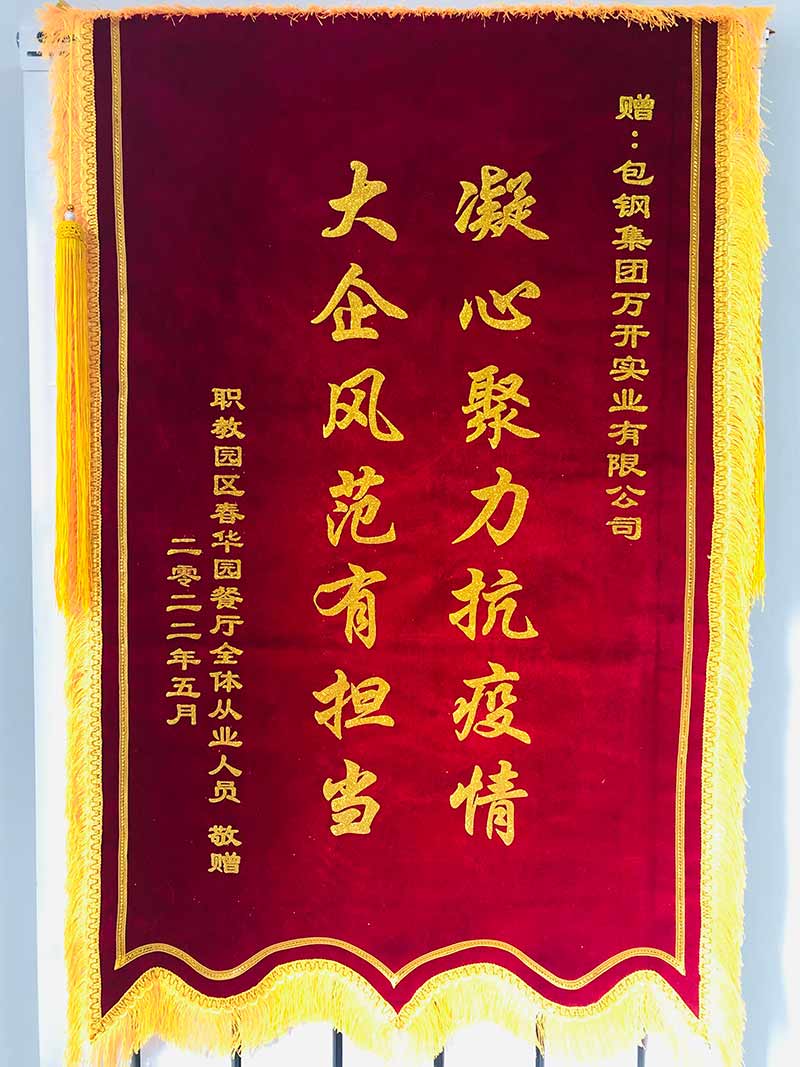 赠：包钢集团万开实业有限公司
凝心聚力抗疫情
大企风范有担当
职教园区春华园餐厅全体从业人员 敬赠
二零二二年五月